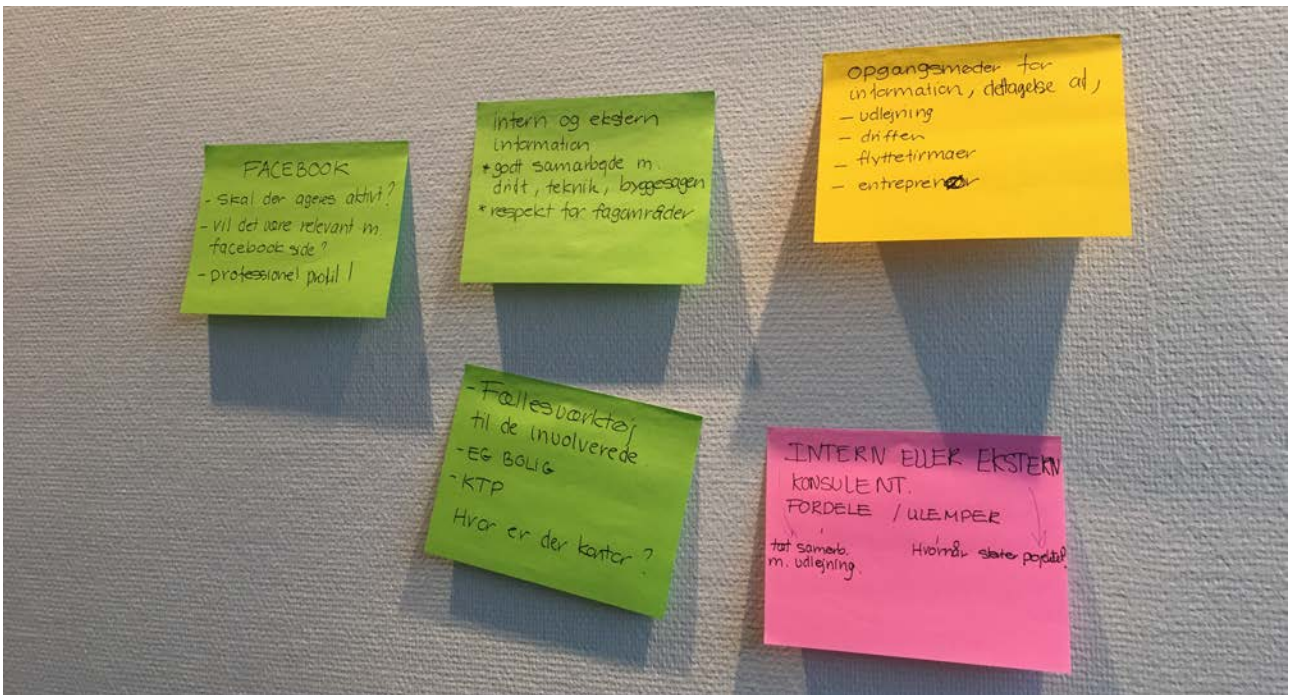 FACEBOOK
- Skal der ageres aktivt?
- vil det være relevant m.
facebook side?
- professionel profil!
intern og ekstern
information
* godt samarbejde m.
drift, teknik, byggesagen
* respekt for fagområder
Opgangsmøder for
information, deltagelse af,
- udlejning
- driften
- flyttefirmaer
- entreprenør
- Fællesværktøj
til de involverede
- EG BOLIG
- KTP
Hvor er der kontor?
INTERN ELLER EKSTERN
KONSULENT.
FORDELE / ULEMPER
tæt samarb.
m. udlejning.
Hvornår